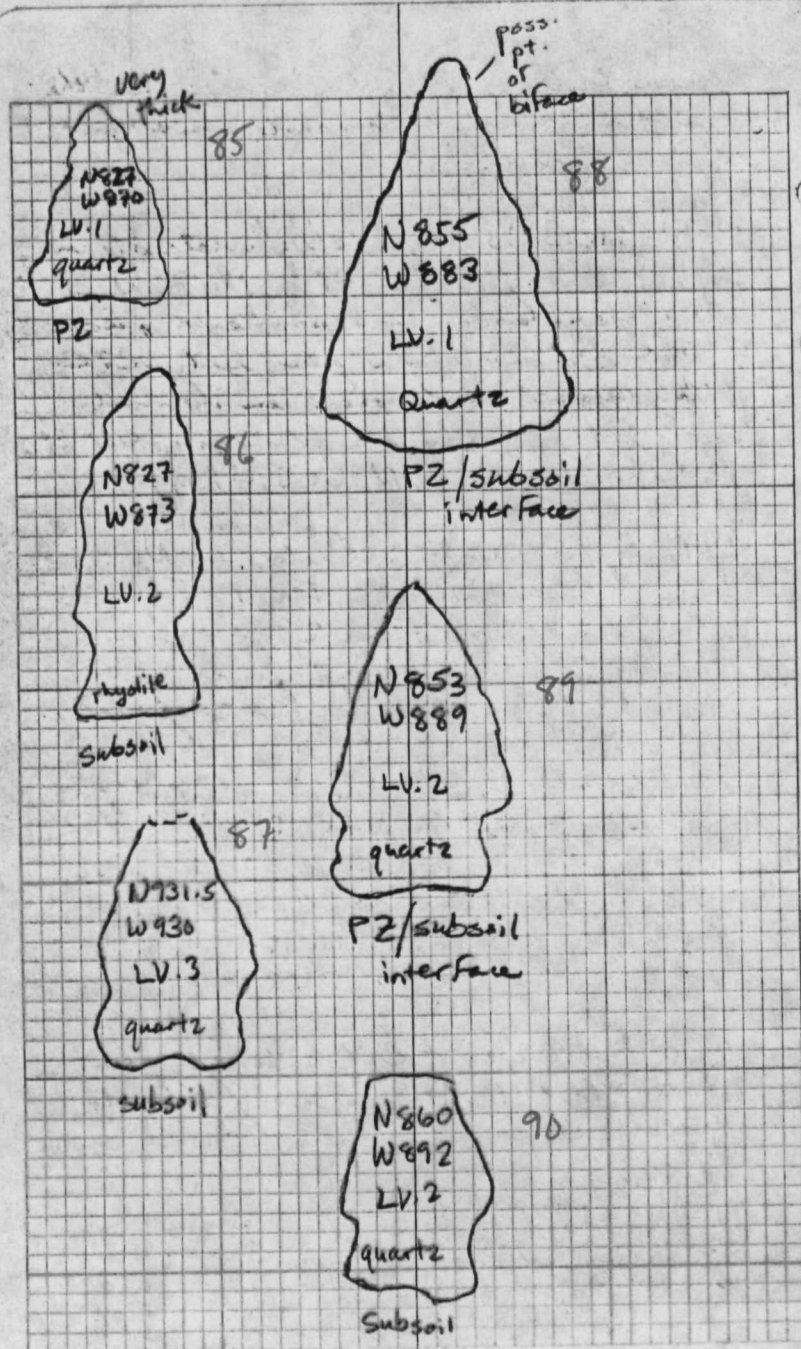 very
thick
85
N827
W870
LV.1
quartz
PZ
86
N827
W873
LV.2
rhyolite
Subsoil
87
N931.5
W930
LV.3
quartz
subsoil
poss.
pt.
or
biface
88
N855
W883
LV.1
Quartz
PZ/subsoil
interface
89
N853
W889
LV.2
quartz
PZ/subsoil
interface
90
N860
W892
LV.2
quartz
Subsoil